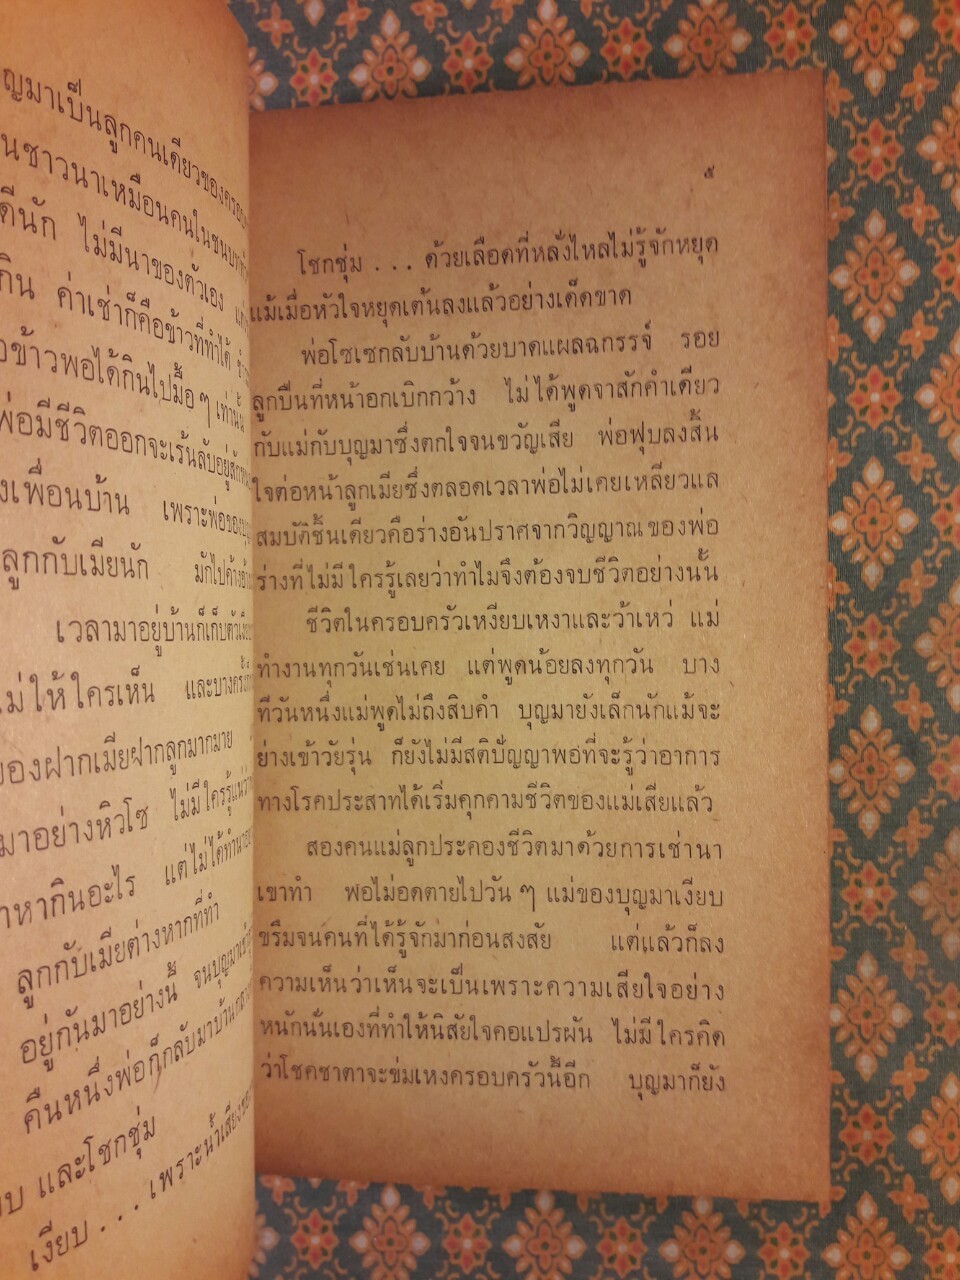 ญมาเป็นลูกคนเดียวของครอบ
นชาวนาเหมือนคนในชนบท
ดีนัก ไม่มีนาของตัวเอง
กิน ค่าเช่าก็คือข้าวที่ทำได้
ข้าวพอได้กินไปมื้อๆ เท่านั้น
พ่อมีชีวิตออกจะเร้นลับอยู่สัก
งเพื่อนบ้าน เพราะพ่อของบุญ
ลูกกับเมียนัก มักไปค้างอ้าง
เวลามาอยู่บ้านก็เก็บตัวเงียบ
ไม่ให้ใครเห็น และบางครั้งก็
ของฝากเมียฝากลูกมากมาย
มาอย่างหิวโซ ไม่มีใครรู้แน่ว่า
าหากินอะไร แต่ไม่ได้ทำนา
ลูกกับเมียต่างหากที่ทำ
อยู่กันมาอย่างนี้ จนบุญมาเข้า
คืนหนึ่งพ่อก็กลับมาบ้านกลาง
และโชกชุ่ม
เงียบ . . . เพราะน้ำเสียงของ
๕
โชกชุ่ม . . . ด้วยเลือดที่หลั่งไหลไม่รู้จักหยุด
แม้เมื่อหัวใจหยุดเต้นลงแล้วอย่างเด็ดขาด
พ่อโซเซกลับบ้านด้วยบาดแผลฉกรรจ์ รอย
ลูกปืนที่หน้าอกเบิกกว้าง ไม่ได้พูดจาสักคำเดียว
กับแม่กับบุญมาซึ่งตกใจจนขวัญเสีย พ่อฟุบลงสิ้น
ใจต่อหน้าลูกเมียซึ่งตลอดเวลาพ่อไม่เคยเหลียวแล
สมบัติชิ้นเดียวคือร่างอันปราศจากวิญญาณของพ่อ
ร่างที่ไม่มีใครรู้เลยว่าทำไมจึงต้องจบชีวิตอย่างนั้น
ชีวิตในครอบครัวเหงียบเหงาและว้าเหว่ แม่
ทำงานทุกวันเช่นเคย แต่พูดน้อยลงทุกวัน บาง
ทีวันหนึ่งแม่พูดไม่ถึงสิบคำ บุญมายังเล็กนักแม้จะ
ย่างเข้าวัยรุ่น ก็ยังไม่มีสติปัญญาพอที่จะรู้ว่าอาการ
ทางโรคประสาทได้เริ่มคุกคามชีวิตของแม่เสียแล้ว
สองคนแม่ลูกประคองชีวิตมาด้วยการเช่านา
เขาทำ พอไม่อดตายไปวันๆ แม่ของบุญมาเงียบ
ขรึมจนคนที่ได้รู้จักมาก่อนสงสัย แต่แล้วก็ลง
ความเห็นว่าเห็นจะเป็นเพราะความเสียใจอย่าง
หนักนั่นเองที่ทำให้นิสัยใจคอแปรผัน ไม่มีใครคิด
ว่าโชคชาตาจะข่มเหงครอบครัวนี้อีก บุญมาก็ยัง